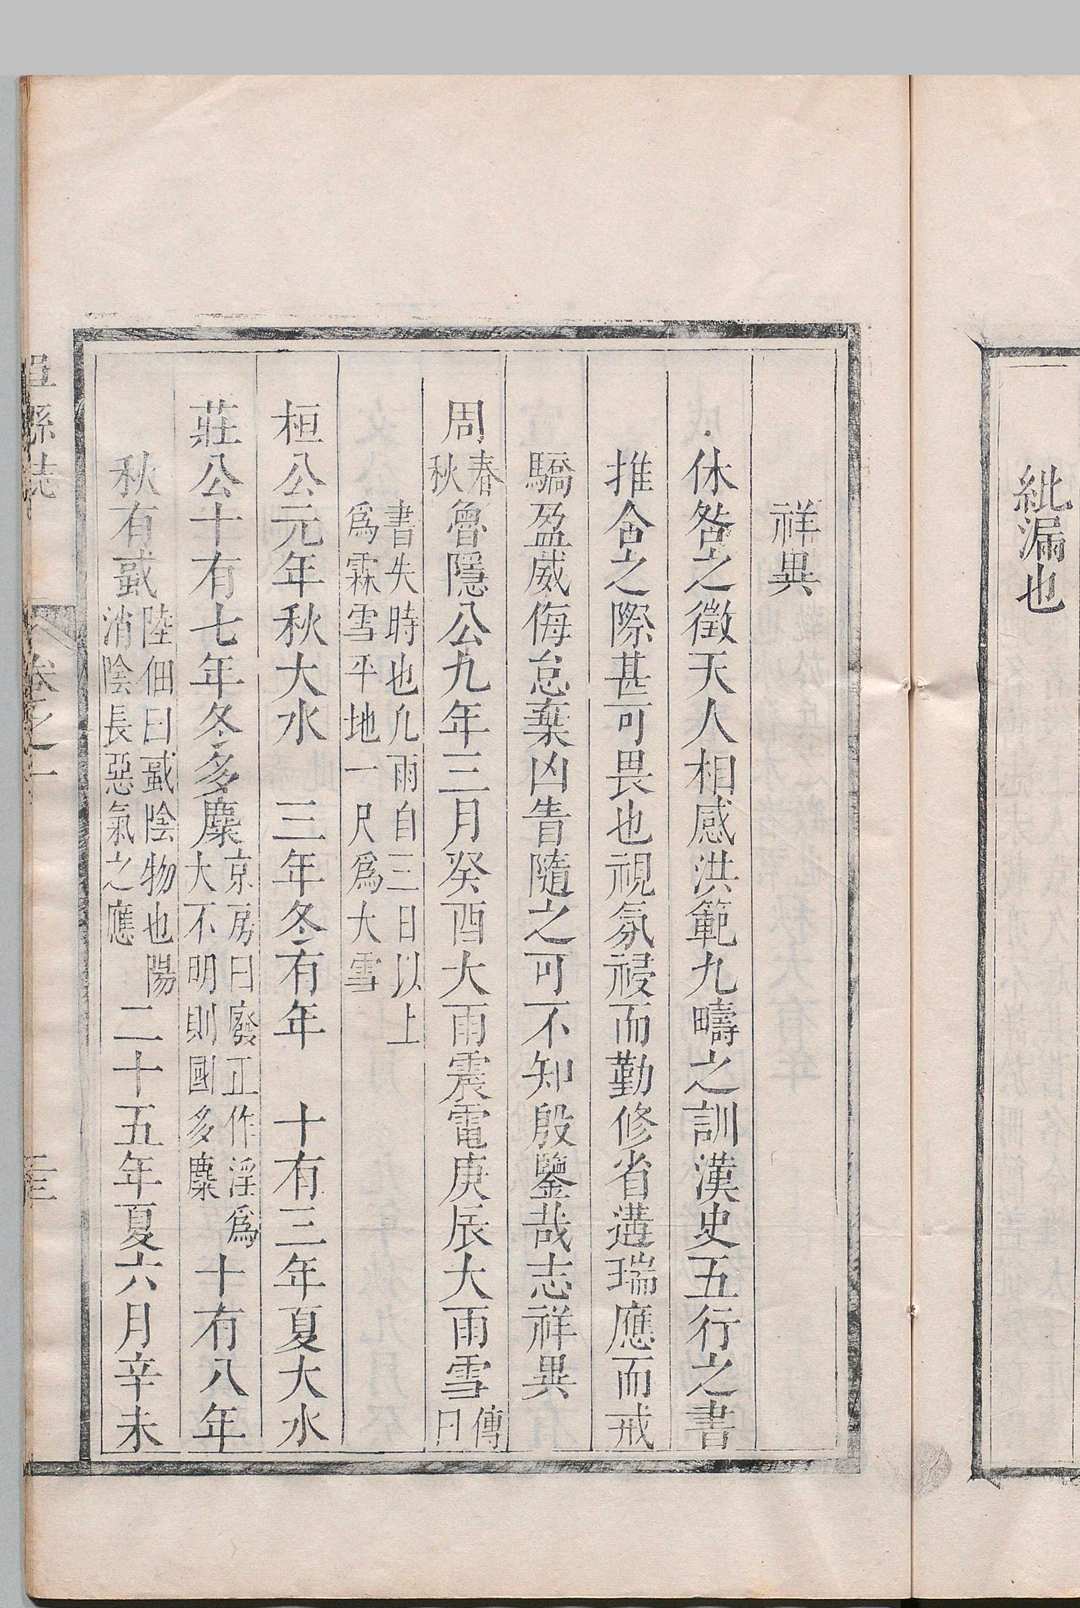 紕漏也
祥異
休咎之徵天人相感洪範九疇之訓漢史五行之書
推會之際甚可畏也視氛祲而勤修省遘瑞應而戒
驕盈威侮怠棄凶眚隨之可不知殷鑒哉志祥異
周春秋魯隱公九年三月癸酉大雨震電庚辰大雨雪傳曰
書失時也凡雨自三日以上
爲霖雪平地一尺爲大雪
桓公元年秋大水　三年冬有年　十有三年夏大水
莊公十有七年冬多麋京房曰廢正作淫爲大不明則國多麋十有八年
秋有蜮陸佃曰蜮陰物也陽消陰長惡氣之應二十五年夏六月辛未
縣誌
卷之一